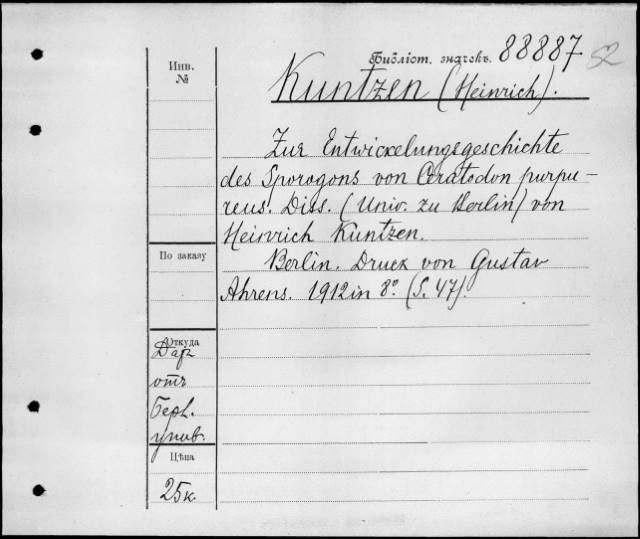 Библіот. значекъ. 88887
52
Инв.
№
Kuntzen (Heinrich).
Zur Entwickelungsgeschichte
des Sporogons von Ceratodon purpu-
reus. Diss. (Univ. zu Berlin) von
Heinrich Kuntzen.
По заказу
Berlin. Druck von Gustav
Ahrens. 1912 in 8° (S. 47).
Откуда
Даръ
отъ
Берл.
унив.
Цѣна
25 к.